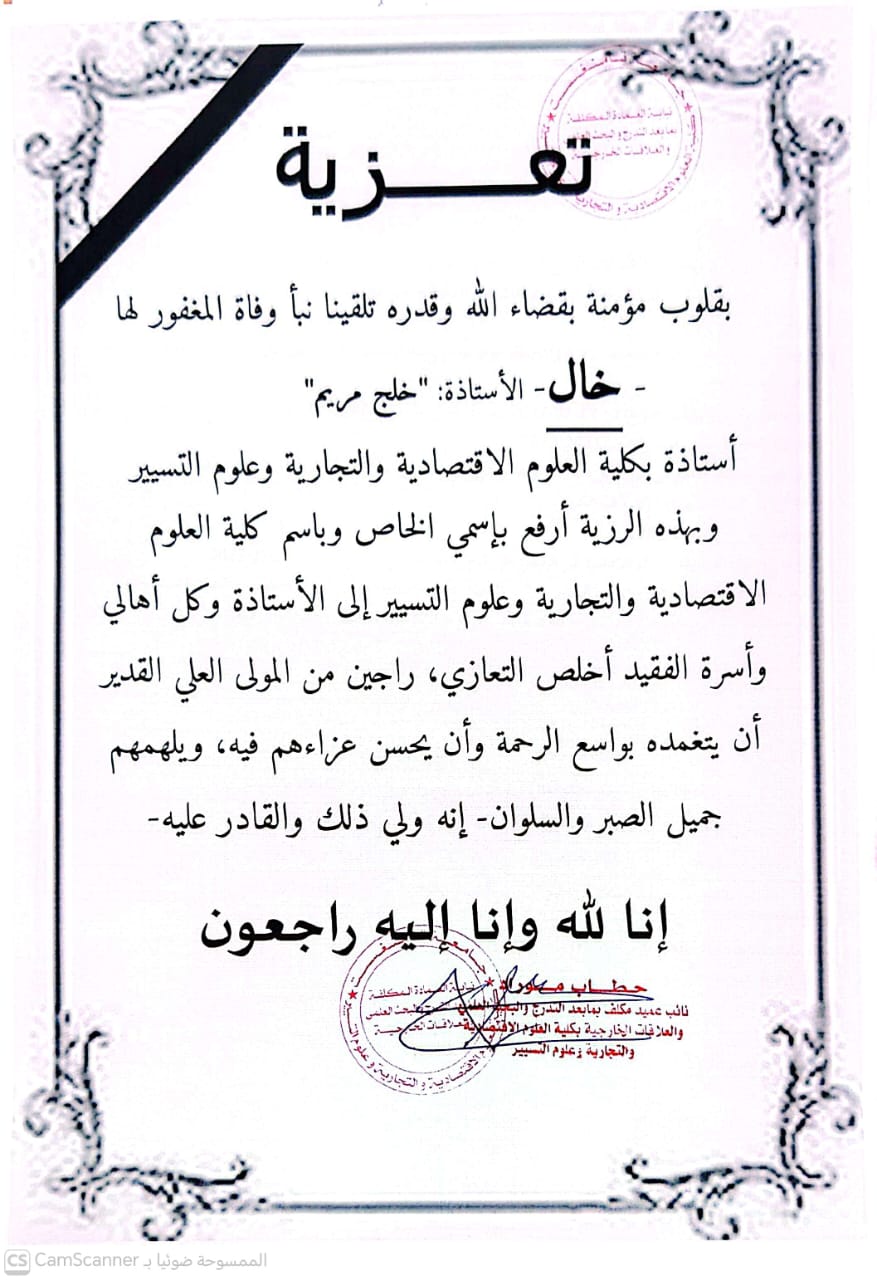 تعزية
بقلوب مؤمنة بقضاء الله وقدره تلقينا نبأ وفاة المغفور لها
- خال- الأستاذة: "خلج مريم"
أستاذة بكلية العلوم الاقتصادية والتجارية وعلوم التسيير
وبهذه الرزية أرفع بإسمي الخاص وباسم كلية العلوم
الاقتصادية والتجارية وعلوم التسيير إلى الأستاذة وكل أهالي
وأسرة الفقيد أخلص التعازي، راجين من المولى العلي القدير
أن يتغمده بواسع الرحمة وأن يحسن عزاءهم فيه، ويلهمهم
جميل الصبر والسلوان- إنه ولي ذلك والقادر عليه-
إنا لله وإنا إليه راجعون
نيابة العمادة المكلفة
بمابعد التدرج والبحث العلمي
والعلاقات الخارجية
حطاب مراد
نائب عميد مكلف بمابعد التدرج والبحث العلمي
والعلاقات الخارجية بكلية العلوم الاقتصادية
والتجارية وعلوم التسيير
CS CamScanner الممسوحة ضوئيا بـ